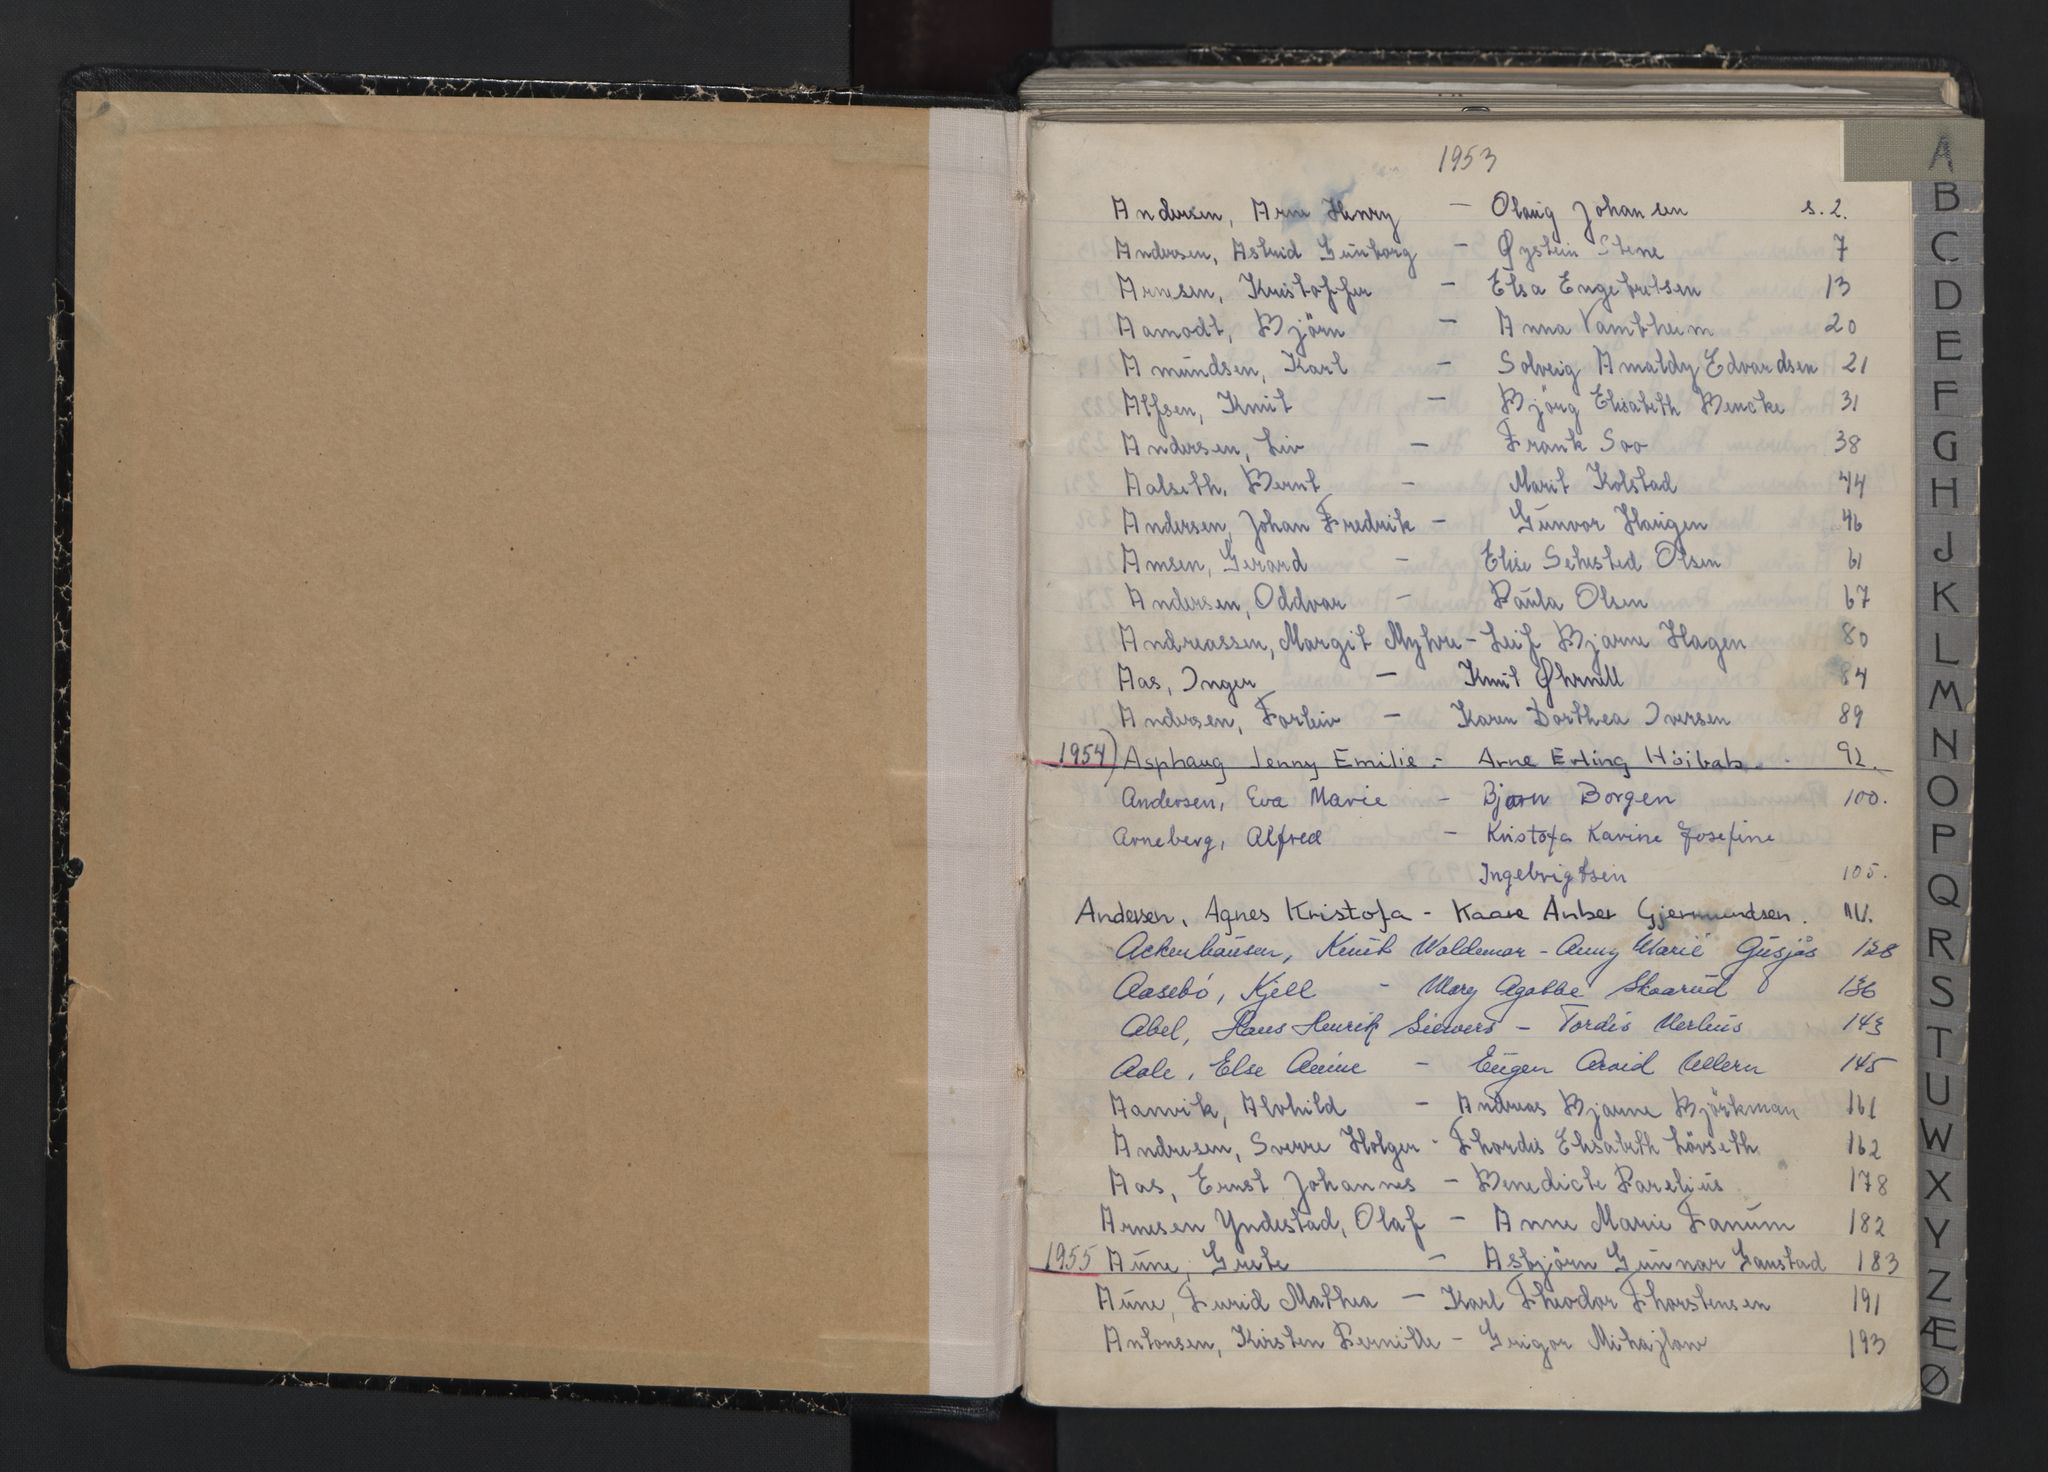 1953
Andersen, Arne Henry - Olaug Johansen s. 2.
Andersen, Astrid Gunborg - Øystein Stene 7
Arnesen, Kristoffer - Elsa Engebretsen 13
Aamodt, Björn - Anna Vambheim 20
Amundsen, Karl - Solveig Amaldy Edvardsen 21
Alfsen, Knut - Bjørg Elisabeth Bencke 31
Andersen, Liv - Frank Soo 38
Aalseth, Bernt - Marit Kolstad 44
Andersen, Johan Fredrik - Gunvor Haugen 46
Amsen, Gerard - Elise Sehested Olsen 61
Andersen, Oddvar - Paula Olsen 67
Andreassen, Margit Myhre - Leif Bjarne Hagen 80
Aas, Inger - Knut Øhrnell 84
Andersen, Torleiv - Karen Dorthea Iversen 89
1954) Asphaug Jenny Emilie - Arne Erling Höibak. 92.
Andersen, Eva Marie - Bjørn Borgen 100.
Arneberg, Alfred - Kristofa Karine Josefine
Ingebrigtsen 105.
Andersen, Agnes Kristofa - Kaare Anber Gjermundsen.
Ackenhausen, Knut Waldemar - Anny Marie Gusjås 128
Aasebö, Kjell - Mary Agathe Skaarud 136
Abel, Hans Henrik Sievers - Tordis Merhus 143
Aale, Else Anine - Eugen Arvid Ullern 145
Aanvik, Alvhild - Andreas Bjarne Björkman 161
Andresen, Sverre Holger - Thordis Elisabeth Lövseth 162
Aas, Ernst Johannes - Benedicte Parelius 178
Arnesen Yndestad, Olaf - Anne Marie Fanum 182
1955 Aune, Grete - Asbjörn Gunnar Gaustad 183
Aune, Turid Mathea - Karl Theodor Thorstensen 191
Antonsen, Kirsten Pernille - Grigor Mihajlow 193
A
B
C
D
E
F
G
H
J
K
L
M
N
O
P
Q
R
S
T
U
W
X
Y
Z
Æ
Ø